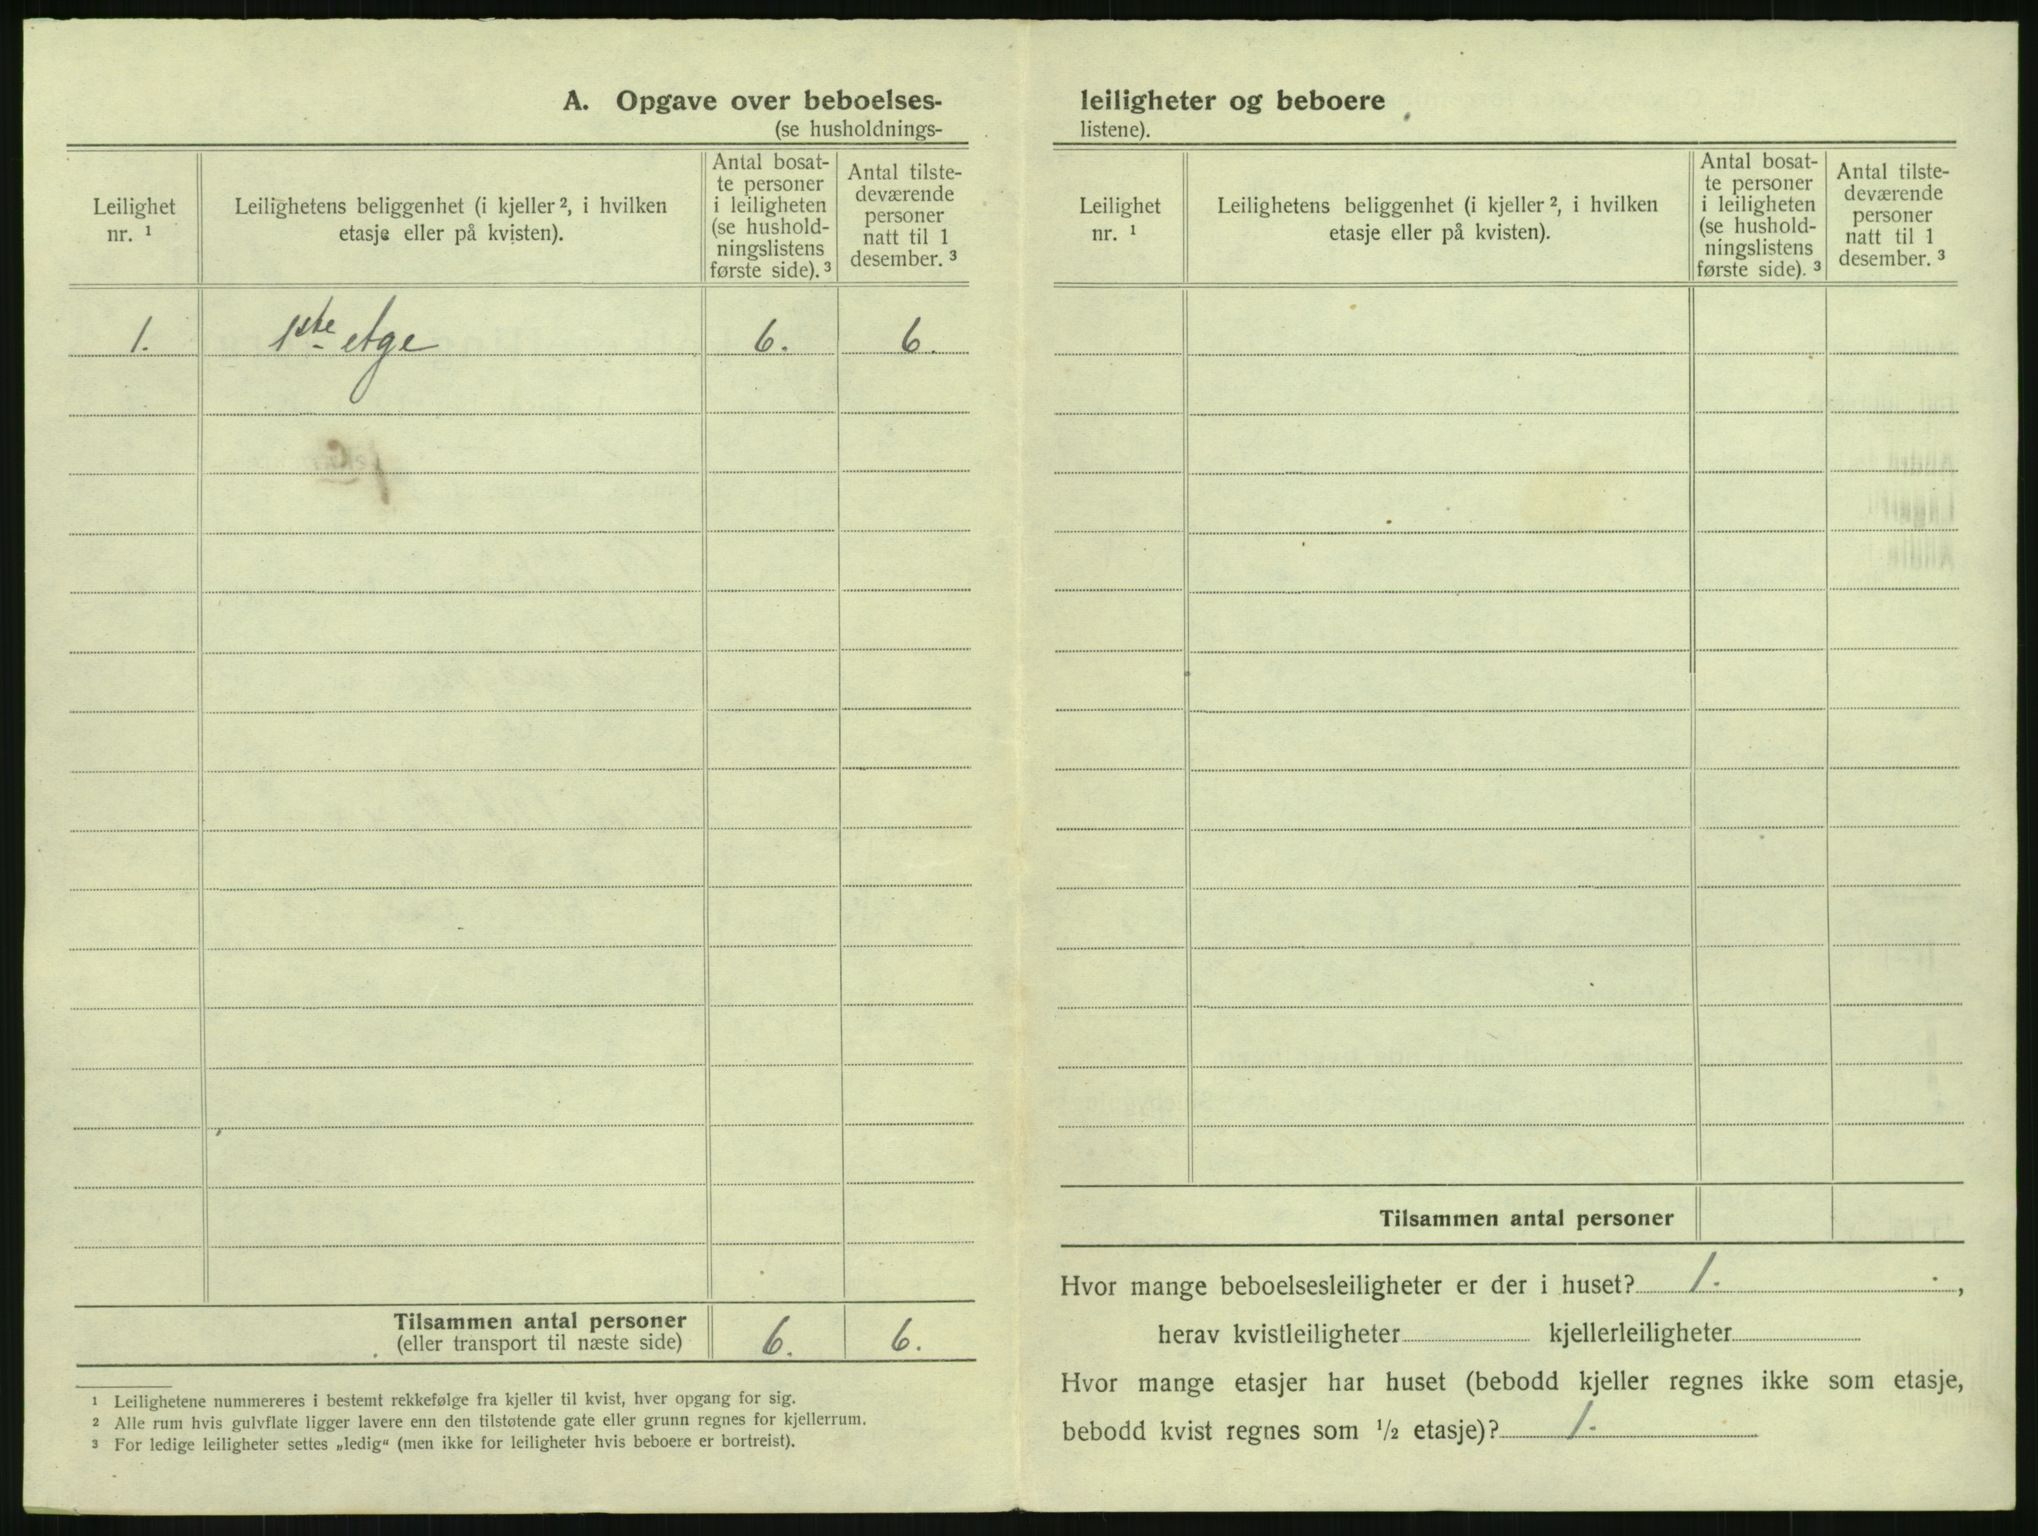 A. Opgave over beboelses-
(se husholdnings-
Leilighet
nr. ¹
Leilighetens beliggenhet (i kjeller ², i hvilken
etasje eller på kvisten).
Antal bosat-
te personer
i leiligheten
(se hushold-
ningslistens
første side). ³
Antal tilste-
deværende
personer
natt til 1
desember. ³
1. 1ste etge 6. 6.
Tilsammen antal personer
(eller transport til næste side) 6. 6.
¹ Leilighetene nummereres i bestemt rekkefølge fra kjeller til kvist, hver opgang for sig.
² Alle rum hvis gulvflate ligger lavere enn den tilstøtende gate eller grunn regnes for kjellerrum.
³ For ledige leiligheter settes „ledig“ (men ikke for leiligheter hvis beboere er bortreist).
leiligheter og beboere
listene).
Leilighet
nr. ¹
Leilighetens beliggenhet (i kjeller ², i hvilken
etasje eller på kvisten).
Antal bosat-
te personer
i leiligheten
(se hushold-
ningslistens
første side). ³
Antal tilste-
deværende
personer
natt til 1
desember. ³
Tilsammen antal personer
Hvor mange beboelsesleiligheter er der i huset? 1. ,
herav kvistleiligheter kjellerleiligheter
Hvor mange etasjer har huset (bebodd kjeller regnes ikke som etasje,
bebodd kvist regnes som ½ etasje)? 1.